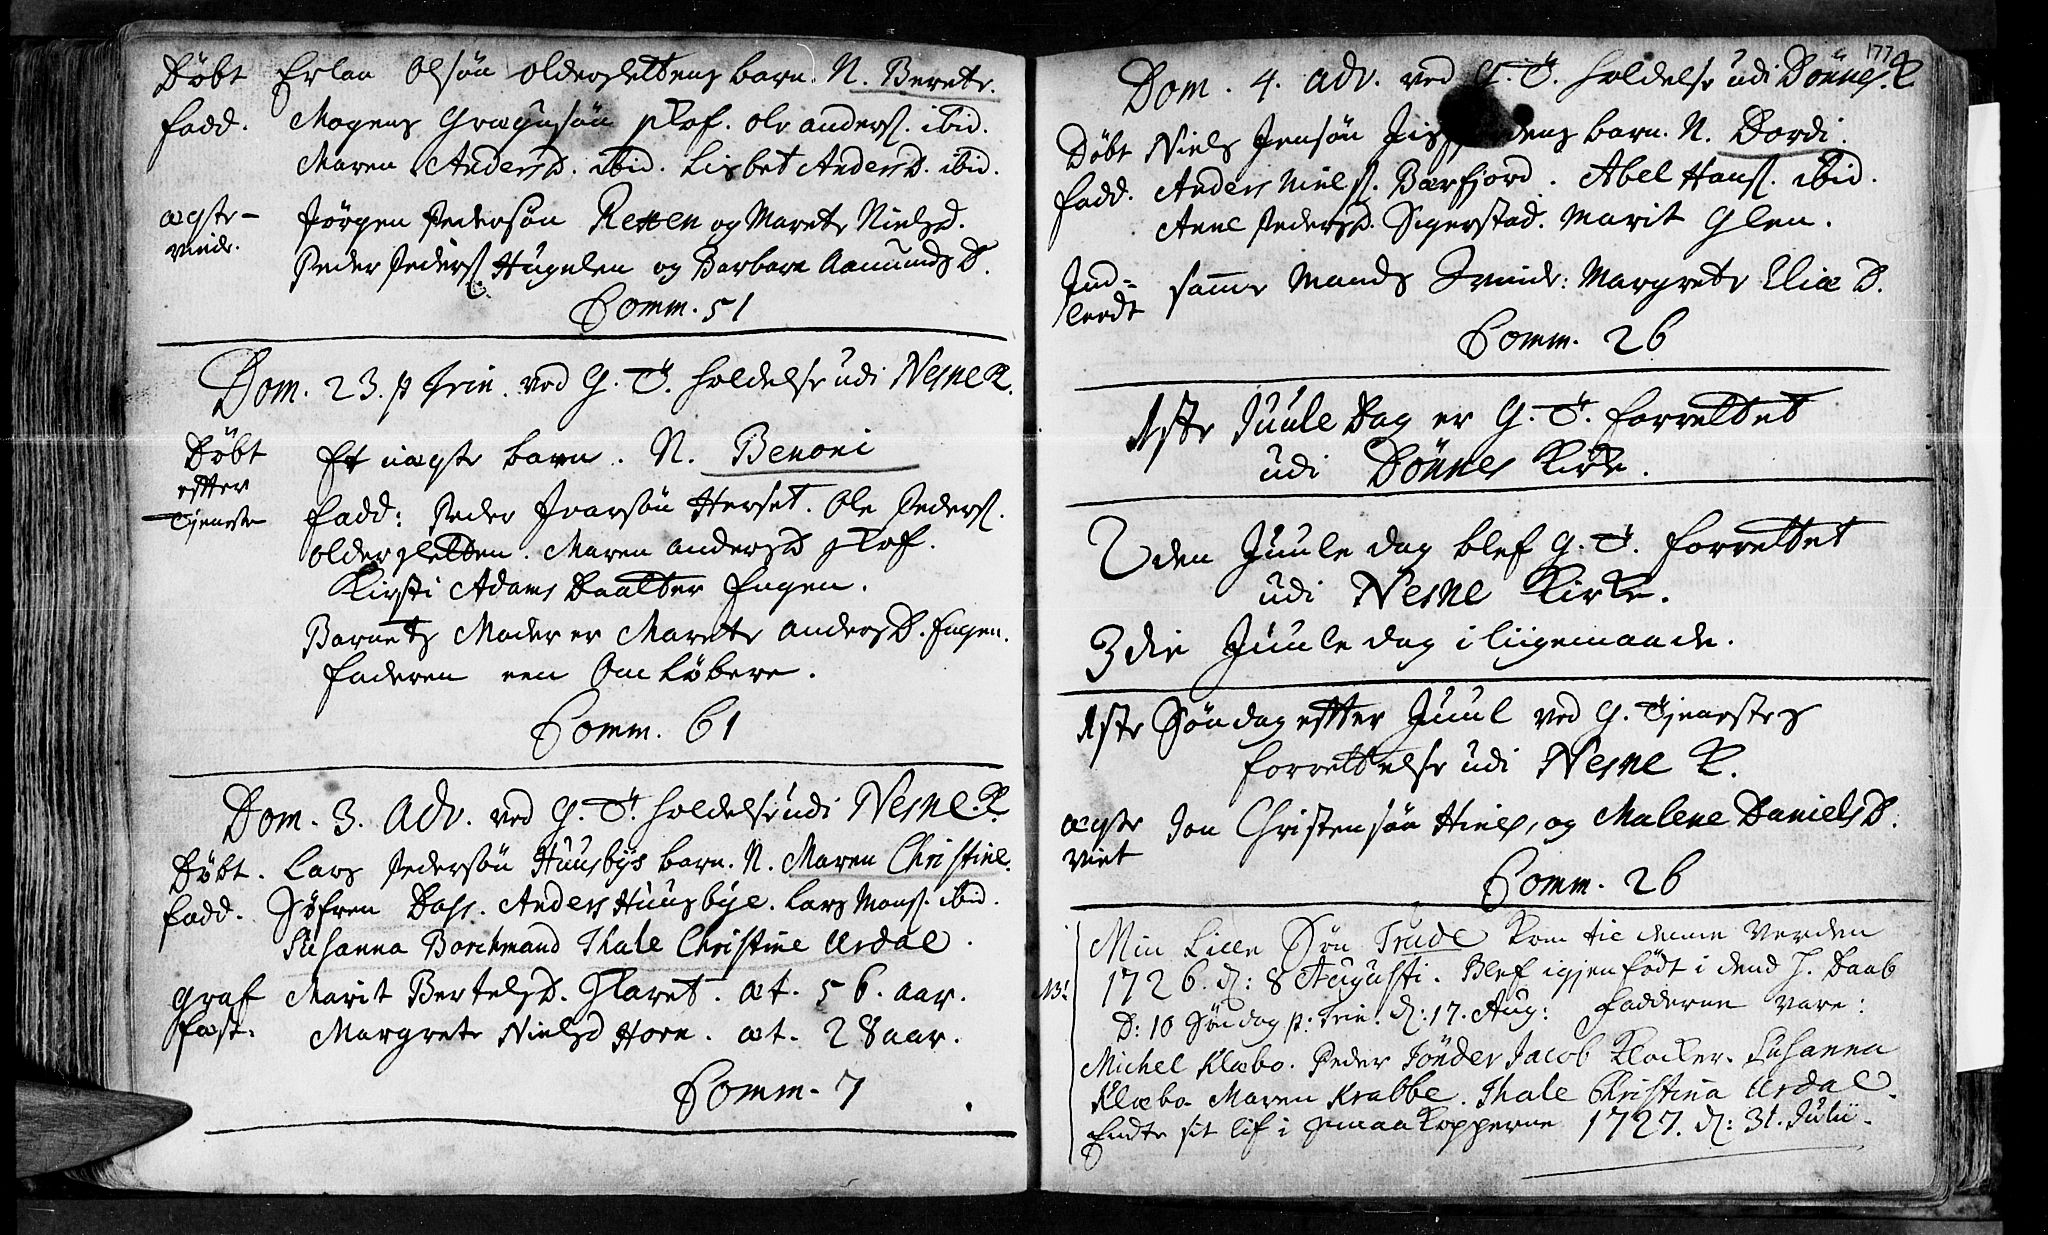 Döbt Erlan Olsön Oldersletteng barn. N. Berete.
fadd. Mogens Gragusön Skaf. Ole Anders. ibid.
Maren AndersD. ibid. Lisbet AndersD. ibid.
ægte- Jörgen Pedersön Retten og Marete NielsD.
viede. Peder Peders. Hugelen og Barbara AamundsD.
Comm. 51
Dom. 23. p Trin. ved G. T. holdelse udi Nesne K.
Döbt Et uægte barn. N. Benoni
effter fadd: Peder Ivarsön Herset. Ole Peders.
Tjeneste Oldersletten. Maren AndersD Skaf.
Kirsti Adams Daatter Engen.
Barnets Moder er Marete AndersD. Engen.
Faderen een Omlöbere.
Comm. 61
Dom. 3. Adv. ved G. T. holdelse udi Nesne. K
Döbt. Lars Pedersön Huusbys barn. N. Maren Christine.
fadd. Söfren Dass. Anders Huusbye. Lars Mons. ibid.
Susanna Borchmand Thale Christine Urdal.
Graf Marit BertelsD. Glaret. æt. 56. aar.
fæst: Margrete NielsD Horn. æt. 28 aar.
Comm. 7
177
Dom. 4. Adv. ved G. T. holdelse udi Dönnes. K
Döbt Niels Jensön barn. N. Dordi.
fadd. Anders Niels. Bærfjord. Abel Hans. ibid.
Anne PedersD. Sigerstad. Marit Glen.
Ind= samme Mands Qvinde: Margrete EliæD.
leedt
Comm. 26
1ste Juule Dag er G. T. forrettet
udi Dönnes Kirke.
2den Juule dag blef G. T. forrettet
udi Nesne Kirke.
3die Juule dag i liigemaade.
1ste Söndag effter Juul ved G. Tjenestes
forrettelse udi Nesne K.
ægte Jon Christensön Hines, og Malene DanielsD.
viet
Comm. 26
Min Lille Sön Trude kom til denne Verden
NB: 1726. d: 8 Augusti. Blef igjenfödt i dend H. Daab
D: 10 Söndag p: Trin. d: 17. Aug: Fadderne vare:
Michel Klæbo. Peder Tönder Jacob Klocker. Susanna
Klæbo Maren Krabbe. Thale Christina Urdal.
Endte sit lif i Smaakopperne 1727. d: 31. Julii.